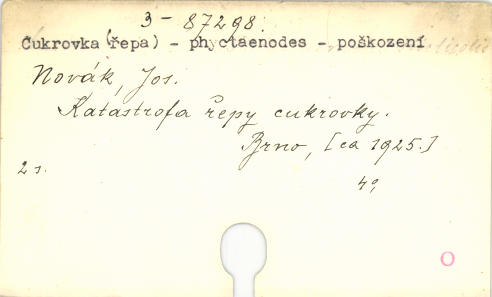 3 - 87298.
Cukrovka (řepa) - phyctaenodes - poškození
Novák, Jos.
Katastrofa řepy cukrovky.
Brno, [ca 1925.]
2 s.
4°,
O